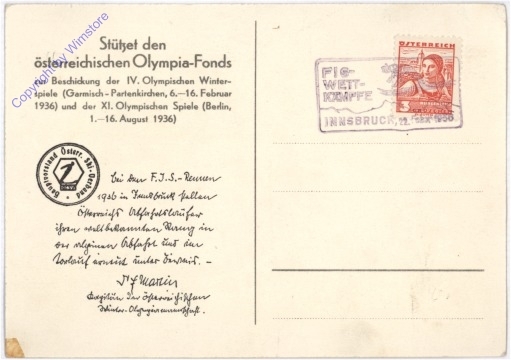 Copyright by Wimstore
Stützet den
österreichischen Olympia-Fonds
zur Beschickung der IV. Olympischen Winter-
spiele (Garmisch-Partenkirchen, 6.—16. Februar
1936) und der XI. Olympischen Spiele (Berlin,
1.—16. August 1936)
Hauptverband Österr. Ski-Verband
Bei den F.I.S.-Rennen
1936 in Innsbruck stellen
Österreichs Abfahrtsläufer
ihren weltbekannten Rang in
der alpinen Abfahrt und im
Torlauf erneut unter Beweis. —
Kapitän der österreichischen
Winter-Olympiamannschaft.
FIS-
WETT-
KÄMPFE
INNSBRUCK, 22.
ÖSTERREICH
3